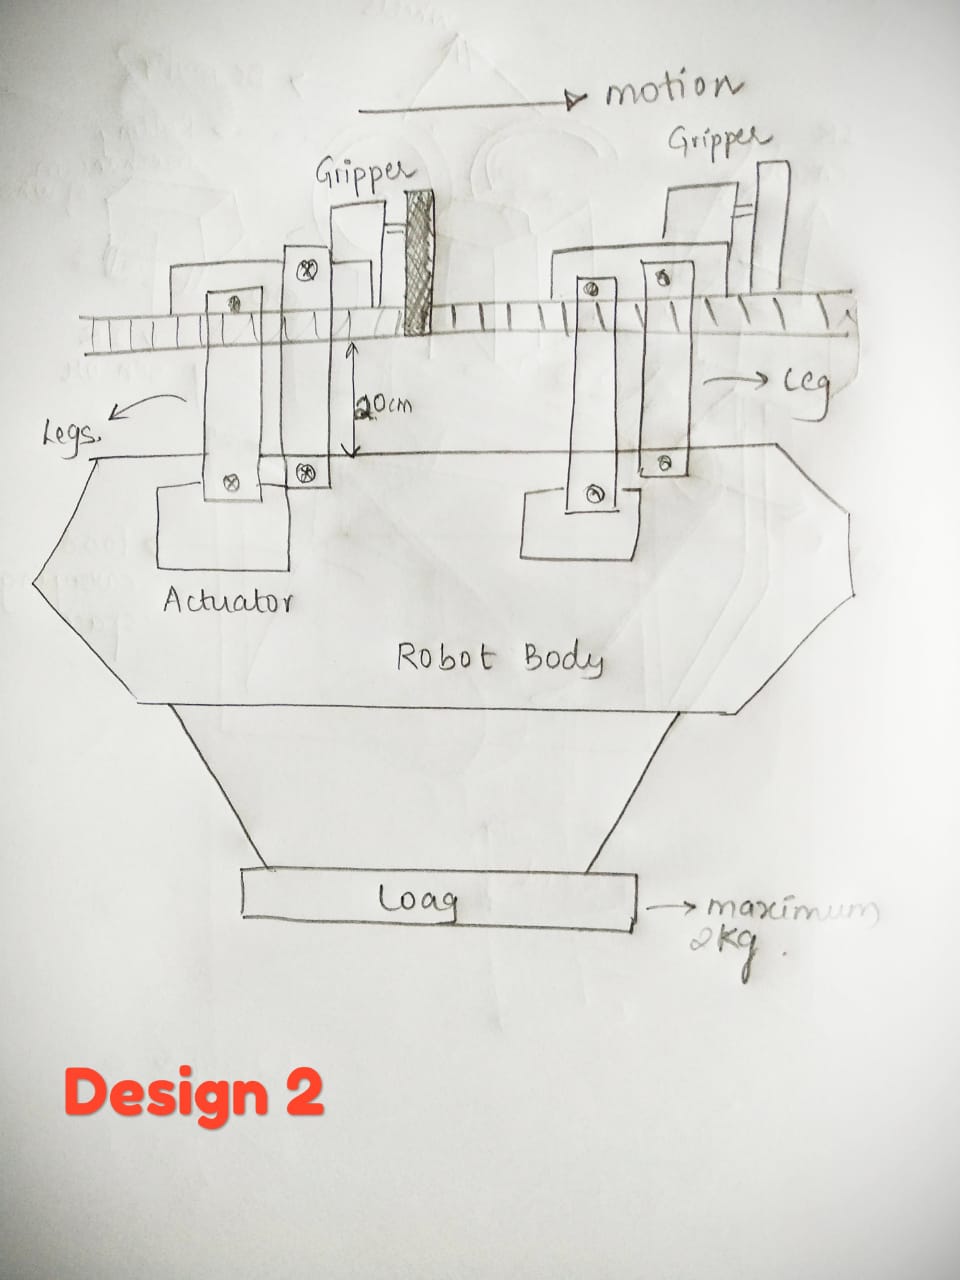 motion
Gripper
Gripper
Leg
20cm
Legs.
Actuator
Robot Body
Load
maximum
2kg.
Design 2